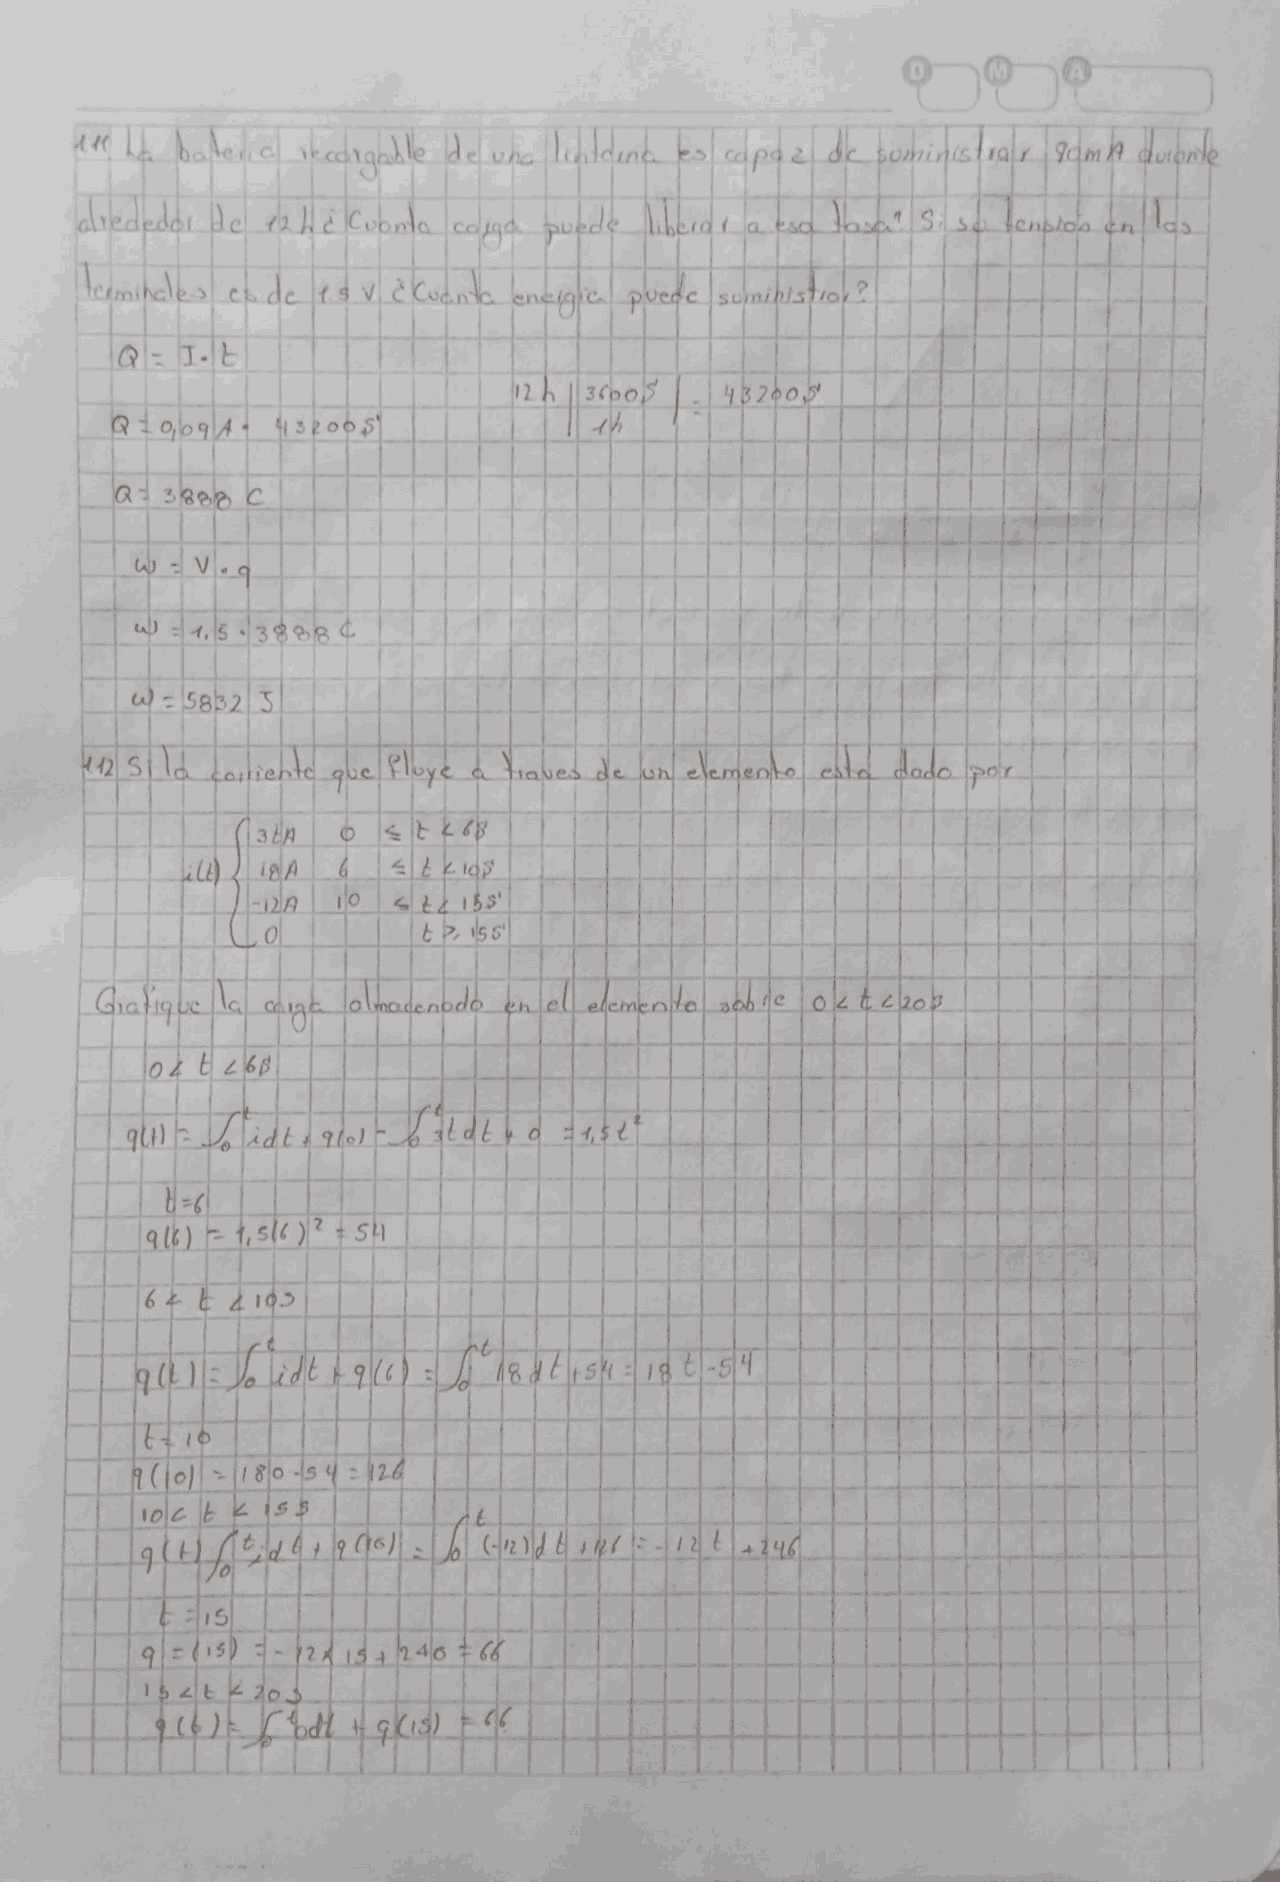 D M A
1.11 La bateria recargable de una linterna es capaz de suministrar 90mA durante
alrededor de 12h ¿Cuanta carga puede liberar a esa tasa? Si su tension en las
terminales es de 1.5 V ¿Cuanta energia puede suministrar?
Q = I • t
12h | 3600S | = 43200S
1h
Q = 0,09 A • 43200S
Q = 3888 C
w = V • q
w = 1.5 • 3888 C
w = 5832 J
1.12 Si la corriente que fluye a traves de un elemento esta dado por
3tA 0 ≤ t < 6S
i(t) 18A 6 ≤ t < 10S
-12A 10 ≤ t < 15S
0 t ≥ 15S
Grafique la carga almacenada en el elemento sobre 0 < t < 20s
0 < t < 6S
q(t) = ∫₀ᵗ idt + q(0) = ∫₀ᵗ 3t dt + 0 = 1,5t²
t=6
q(6) = 1,5(6)² = 54
6 < t < 10s
q(t) = ∫₀ᵗ idt + q(6) = ∫₀ᵗ 18 dt + 54 = 18 t - 54
t = 10
q(10) = 180 - 54 = 126
10 < t < 15s
q(t) ∫₀ᵗ idt + q(10) = ∫₀ᵗ (-12)dt + 126 = -12 t + 246
t = 15
q = (15) = -12 x 15 + 246 = 66
15 < t < 20s
q(t) = ∫₀ᵗ 0dt + q(15) = 66